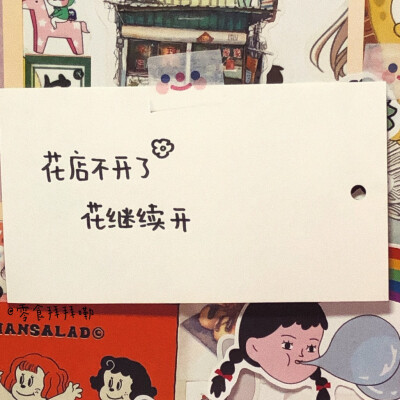 花店不开了
花继续开
@零食拜拜嘞
HANSALAD©